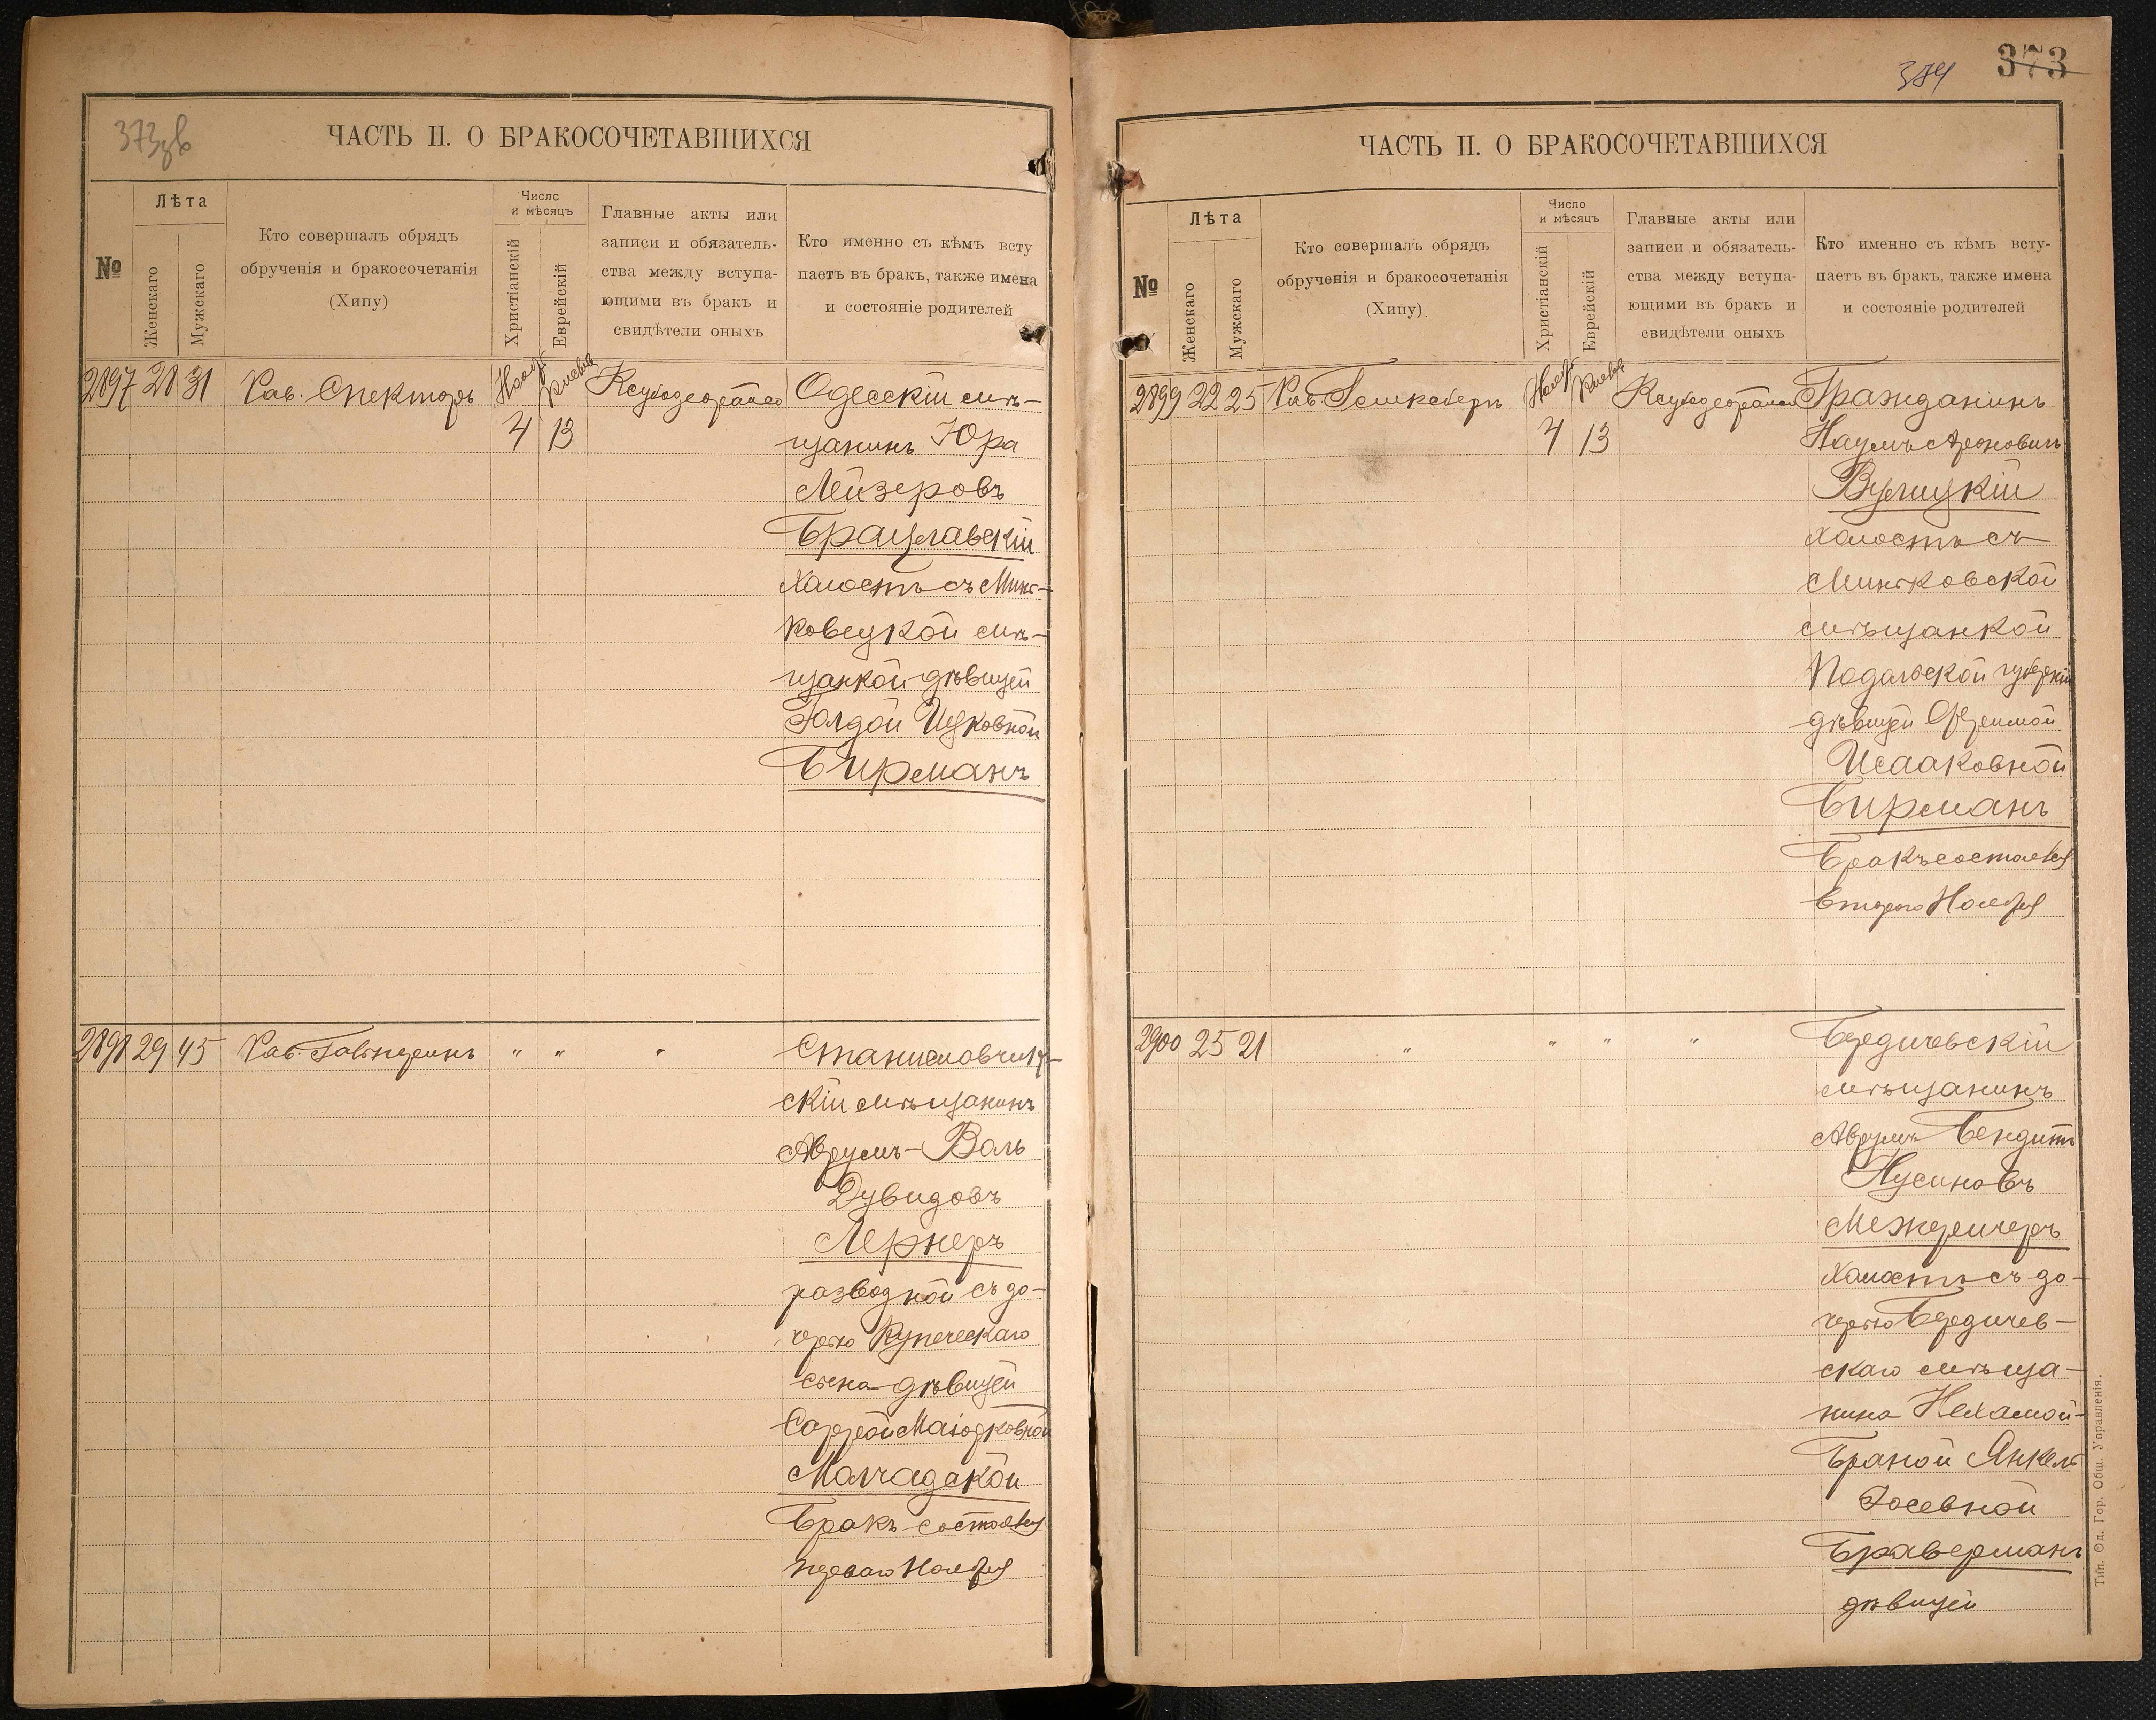 373зв
ЧАСТЬ II. О БРАКОСОЧЕТАВШИХСЯ
№
Лѣта
Женскаго
Мужскаго
Кто совершалъ обрядъ
обрученія и бракосочетанія
(Хипу)
Число
и мѣсяцъ
Христіанскій
Еврейскій
Главные акты или
записи и обязатель-
ства между вступа-
ющими въ бракъ и
свидѣтели оныхъ
Кто именно съ кѣмъ всту
паетъ въ бракъ, также имена
и состояніе родителей
2897 28 31 Рав. Спекторъ
4 13
Одесскій мѣ-
щанинъ Юра
Лейзеровъ
Брацлавскій
холостъ съ Минь-
ковецкой мѣ-
щанкой дѣвицей
Голдой Ицковной
Бирманъ
2898 29 45 Рав. " " "
Станиславчик-
скій мѣщанинъ
Аврумъ-Воль
Дувидовъ
Лернеръ
разводной съ до-
черью Купеческаго
сына дѣвицей
Саррой Маіорковной
Бракъ состоялся
перваго Ноября
384 373
ЧАСТЬ II. О БРАКОСОЧЕТАВШИХСЯ
№
Лѣта
Женскаго
Мужскаго
Кто совершалъ обрядъ
обрученія и бракосочетанія
(Хипу).
Число
и мѣсяцъ
Христіанскій
Еврейскій
Главные акты или
записи и обязатель-
ства между вступа-
ющими въ бракъ и
свидѣтели оныхъ
Кто именно съ кѣмъ всту-
паетъ въ бракъ, также имена
и состояніе родителей
2899 22 25 Рав.
4 13
Гражданинъ
Наумъ Ароновичъ
холостъ съ
Миньковской
мѣщанкой
Подольской губерніи
дѣвицей
Исааковной
Бирманъ
Бракъ состоялся
второго Ноября
2900 25 21 " " " "
Бердичевскій
мѣщанинъ
Аврумъ Бендитъ
Нусиновъ
Межеричеръ
холостъ съ до-
черью Бердичев-
скаго мѣща-
нина Нехамой-
Браной Янкель
Іосевной
Браверманъ
дѣвицей
Тип. Од. Гор. Общ. Управленія.